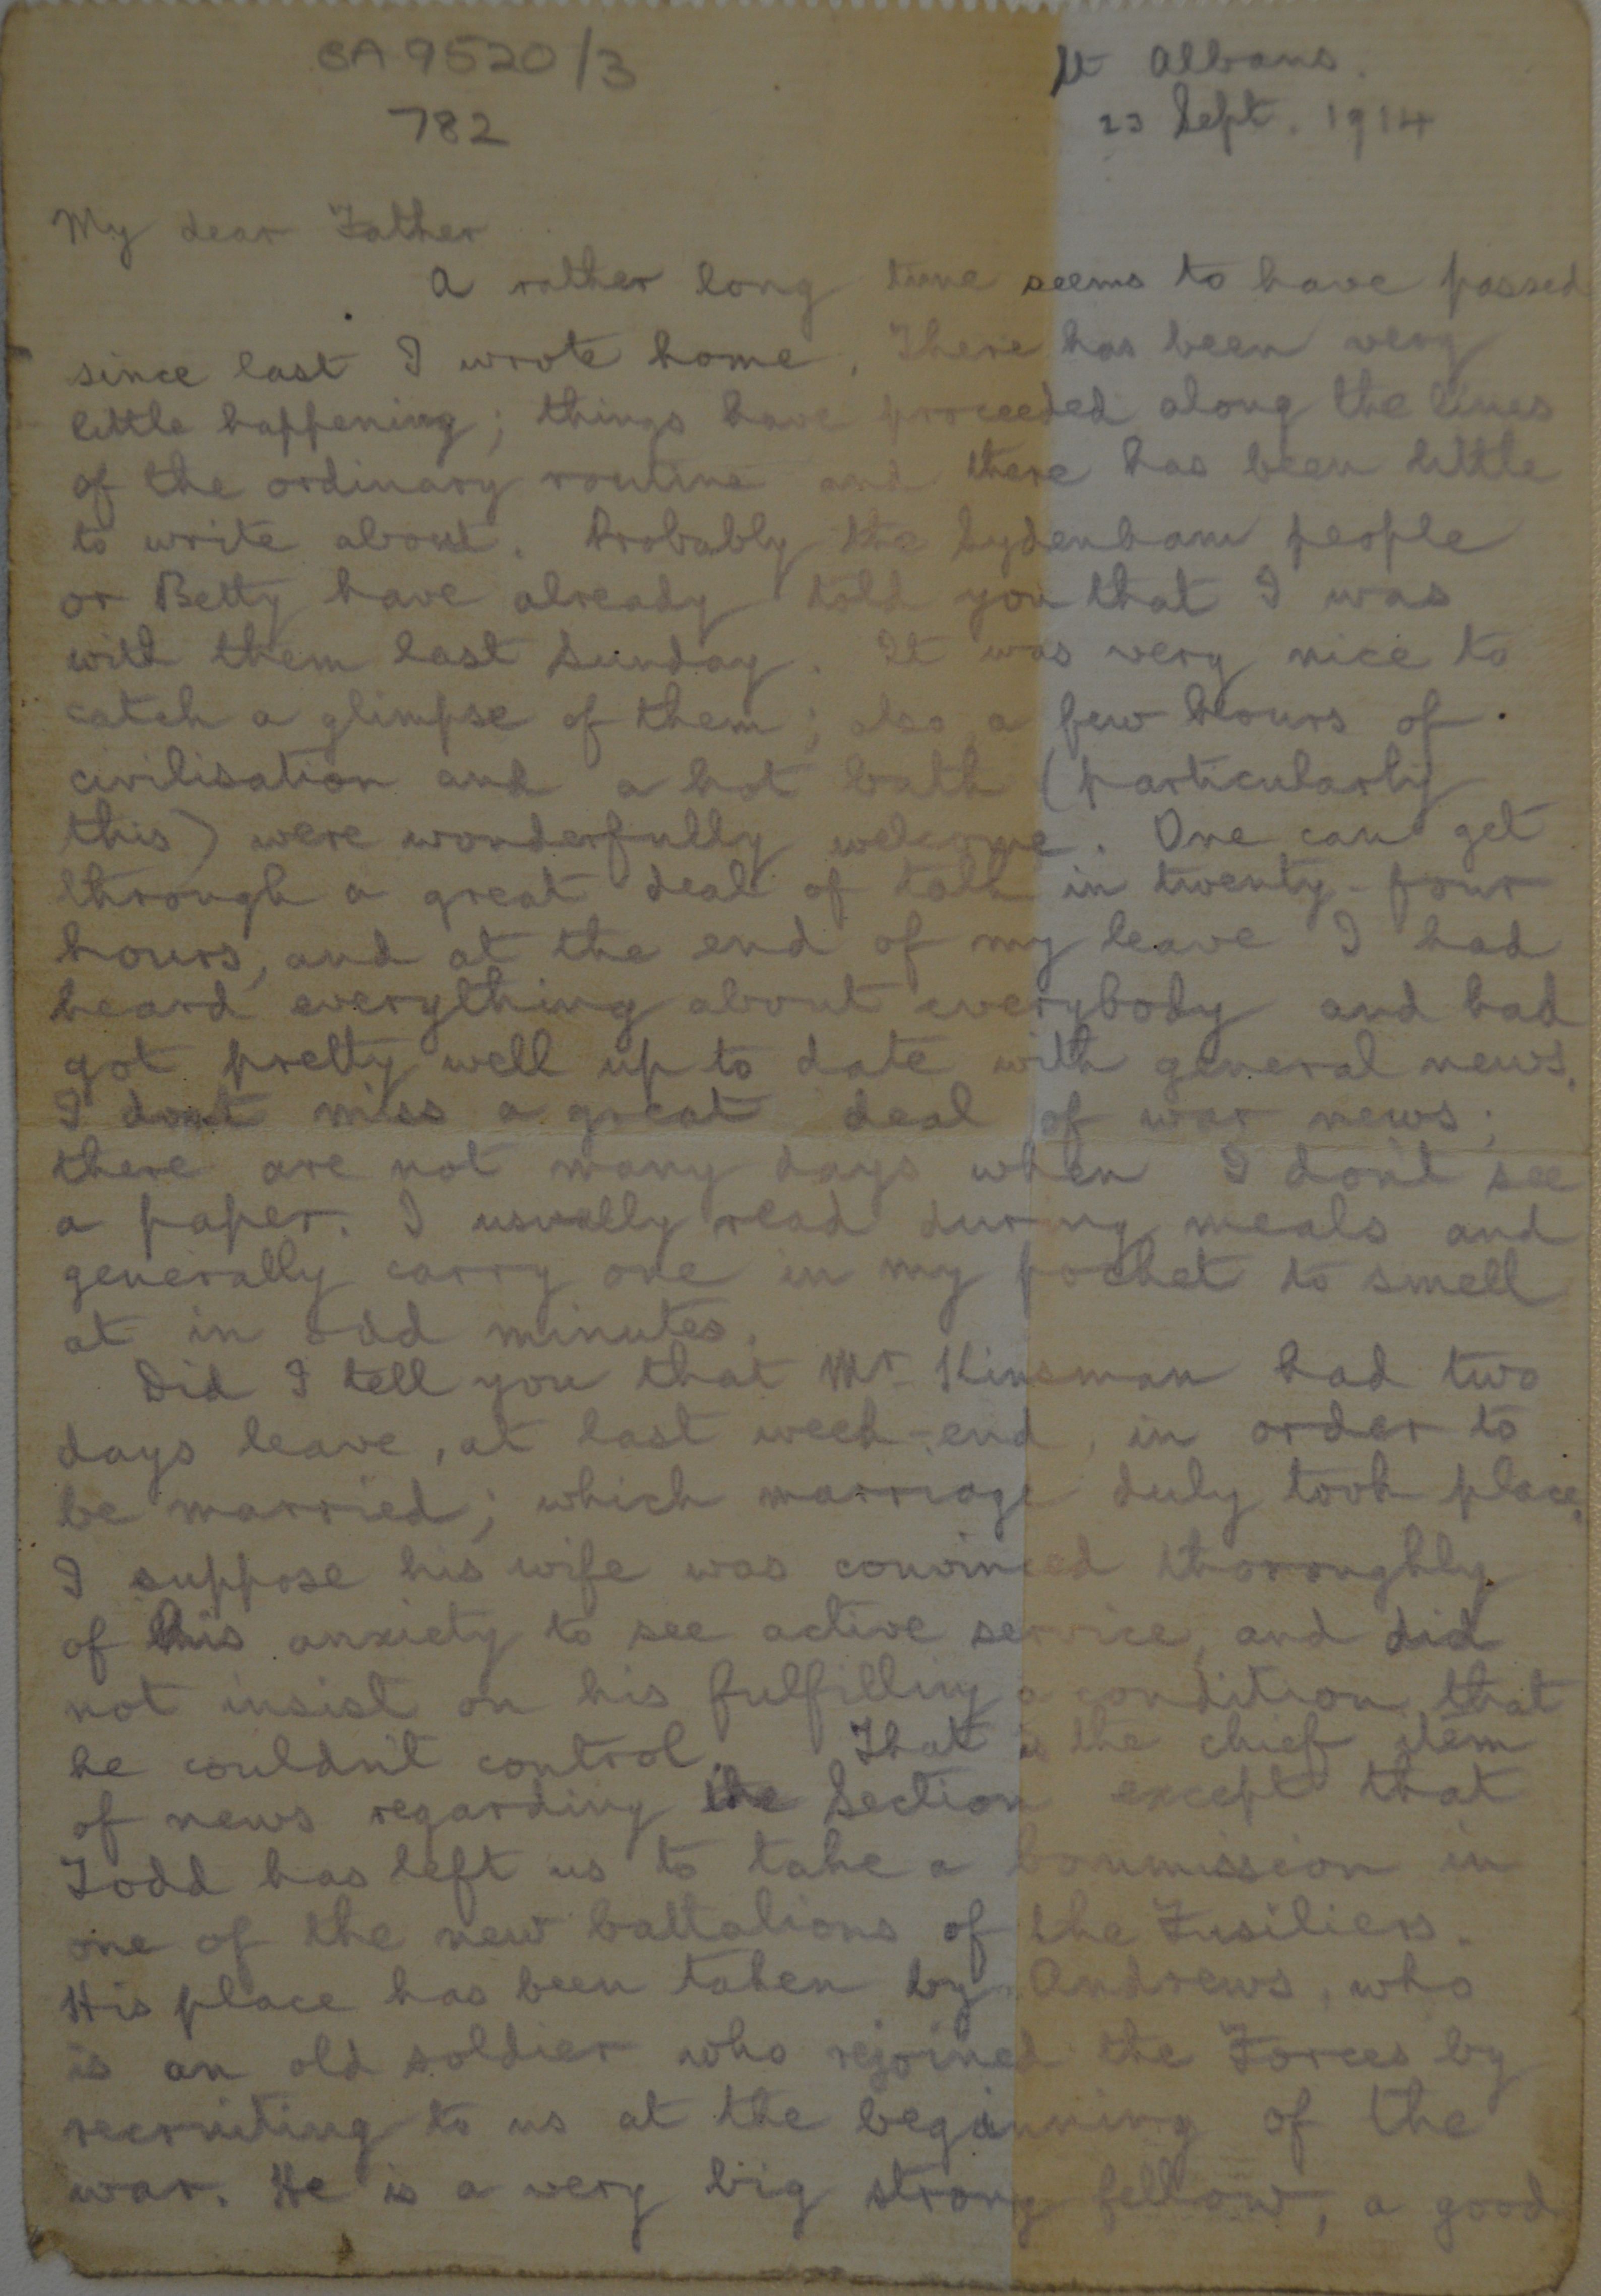 SA 9520/3
782
St Albans.
23 Sept. 1914
My dear Father
A rather long time seems to have passed
since last I wrote home. There has been very
little happening; things have proceeded along the lines
of the ordinary routine and there has been little
to write about. Probably the Sydenham people
or Betty have already told you that I was
with them last Sunday. It was very nice to
catch a glimpse of them; also a few hours of
civilisation and a hot bath (particularly
this) were wonderfully welcome. One can get
through a great deal of talk in twenty-four
hours, and at the end of my leave I had
heard everything about everybody and had
got pretty well up to date with general news.
I dont miss a great deal of war news;
there are not many days when I don't see
a paper. I usually read during meals and
generally carry one in my pocket to smell
at in odd minutes.
Did I tell you that Mr Kinsman had two
days leave, at last week-end, in order to
be married; which marriage duly took place.
I suppose his wife was convinced thoroughly
of his anxiety to see active service, and did
not insist on his fulfilling a condition that
he couldn't control. That is the chief item
of news regarding the Section except that
Todd has left us to take a Commission in
one of the new battalions of the Fusiliers.
His place has been taken by Andrews, who
is an old soldier who rejoined the Forces by
recruiting to us at the beginning of the
war. He is a very big strong fellow, a good